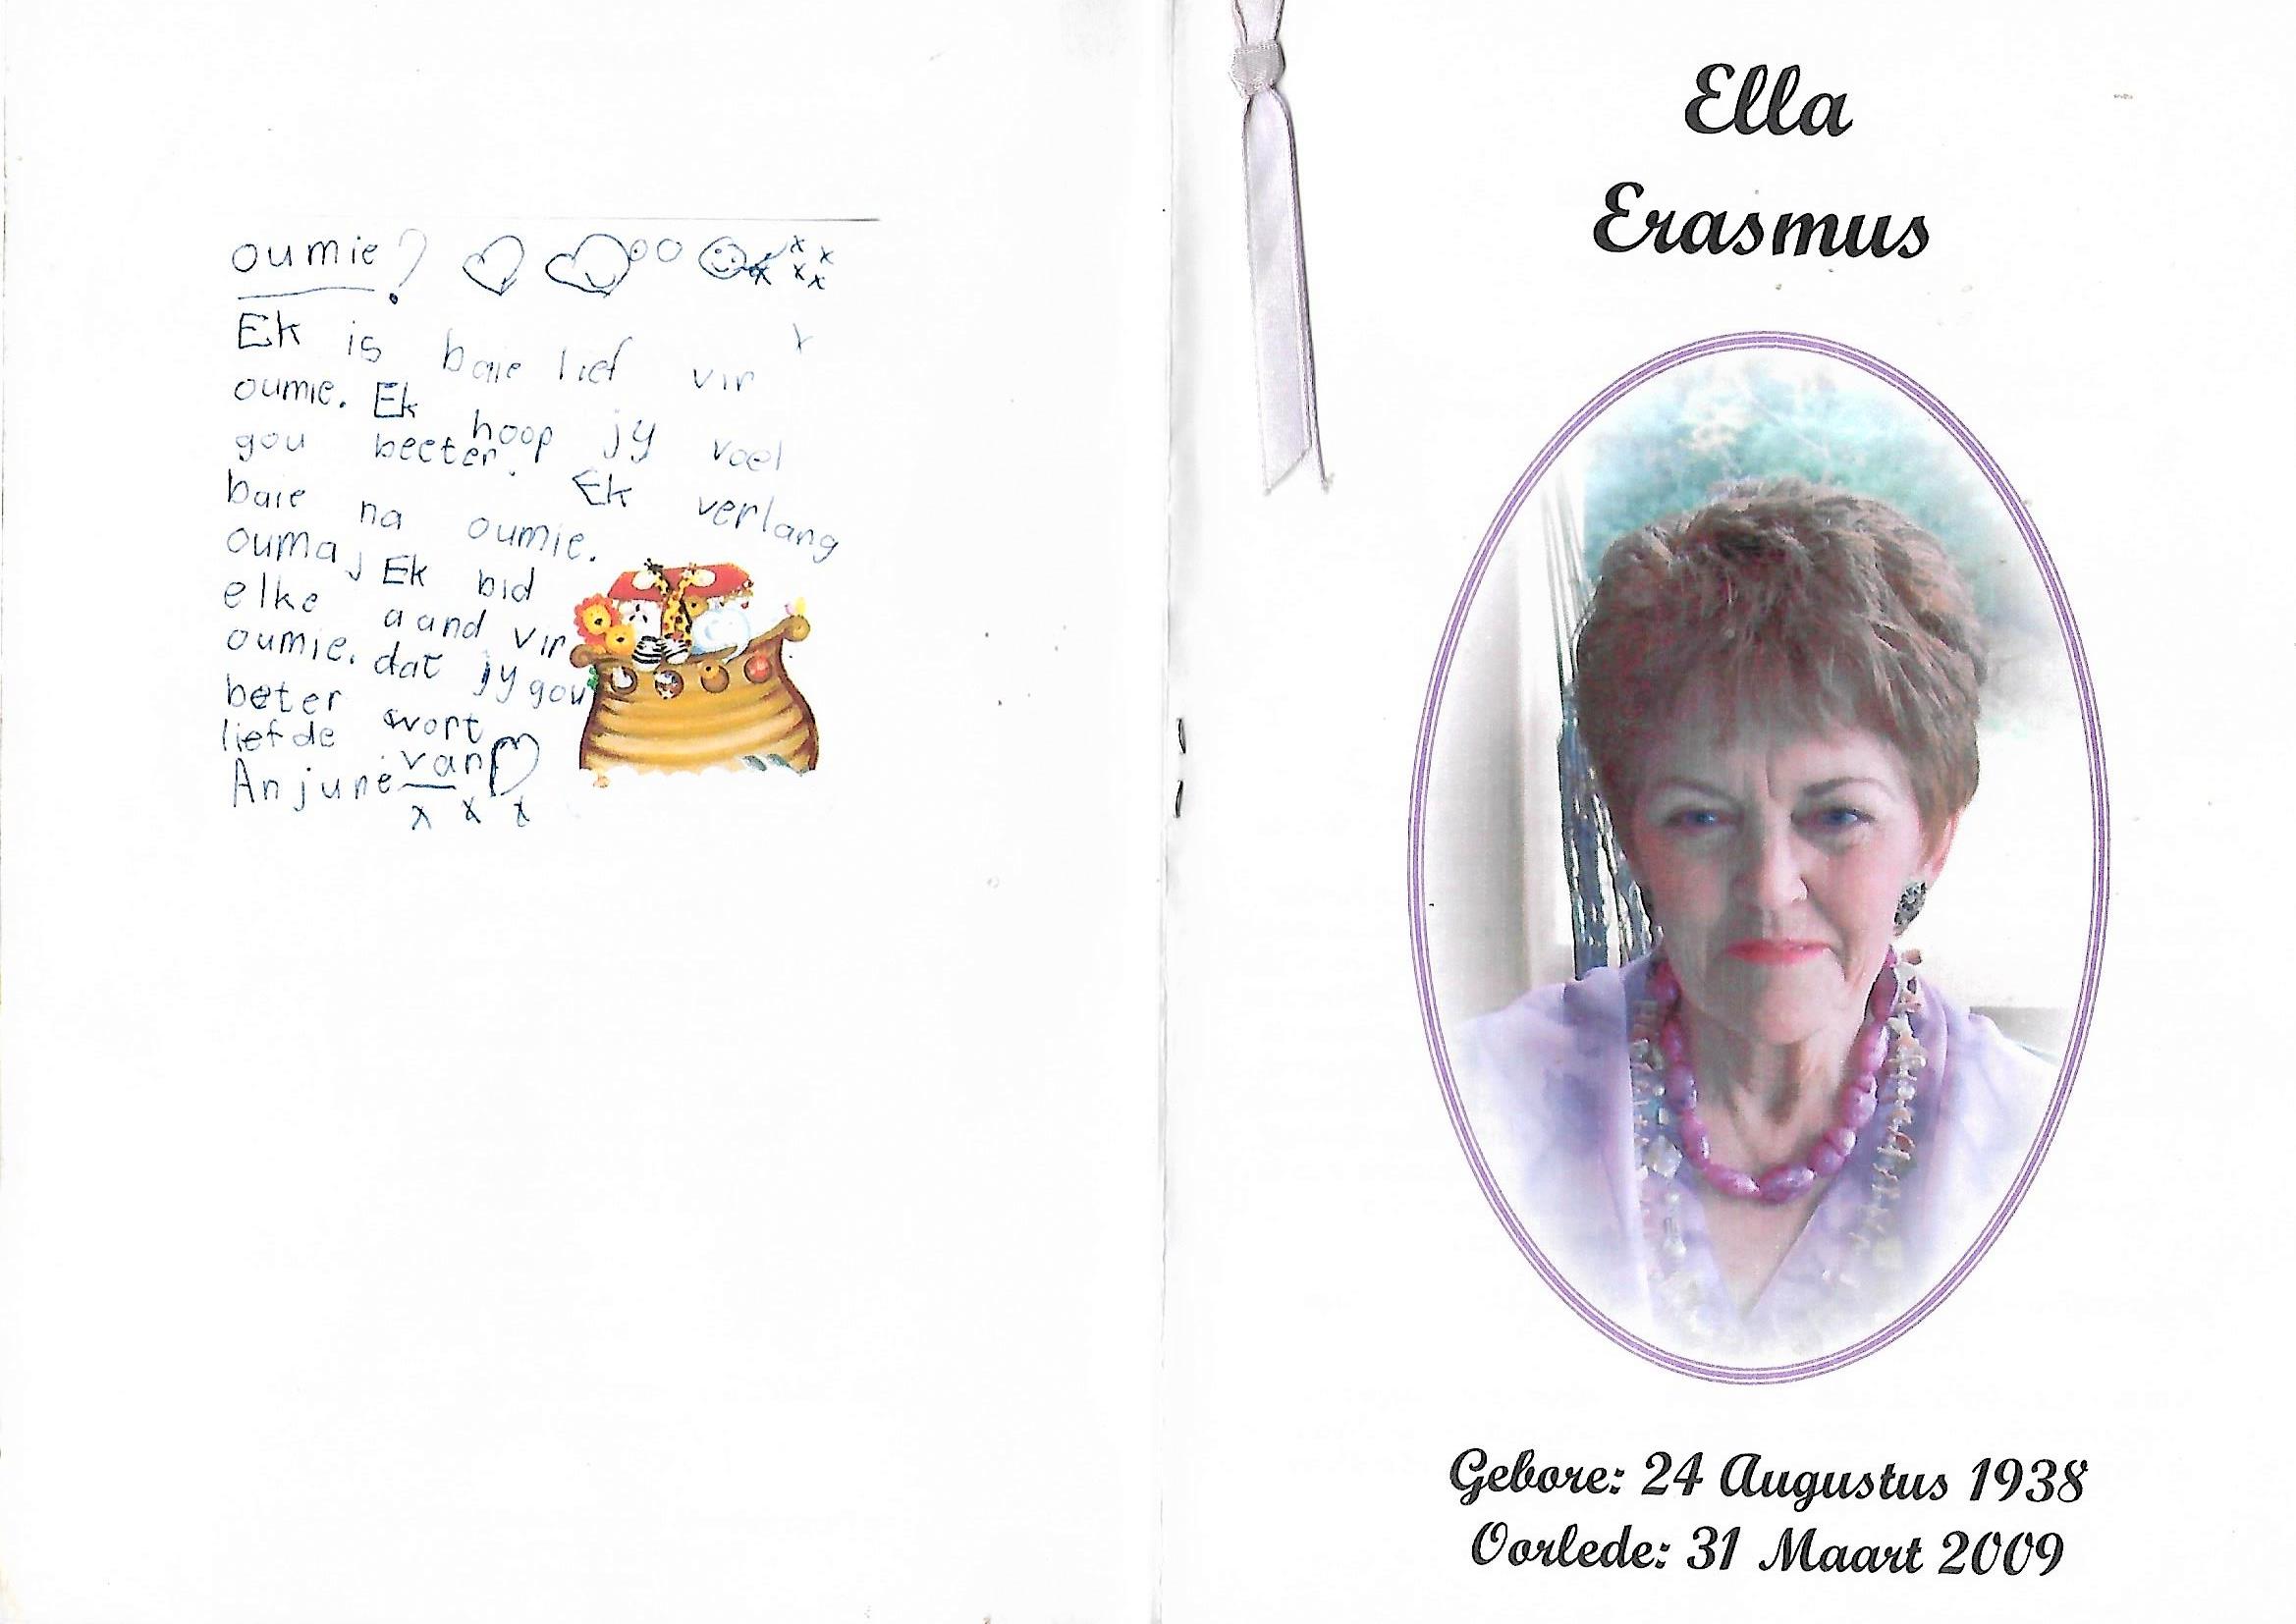 oumie?
Ek is baie lief vir
oumie. Ek hoop jy voel
gou beeter. Ek verlang
baie na oumie.
ouma, Ek bid
elke aand vir
oumie. dat jy gou
beter wort
liefde van
Anjuné
x x x
Ella
Erasmus
Gebore: 24 Augustus 1938
Oorlede: 31 Maart 2009